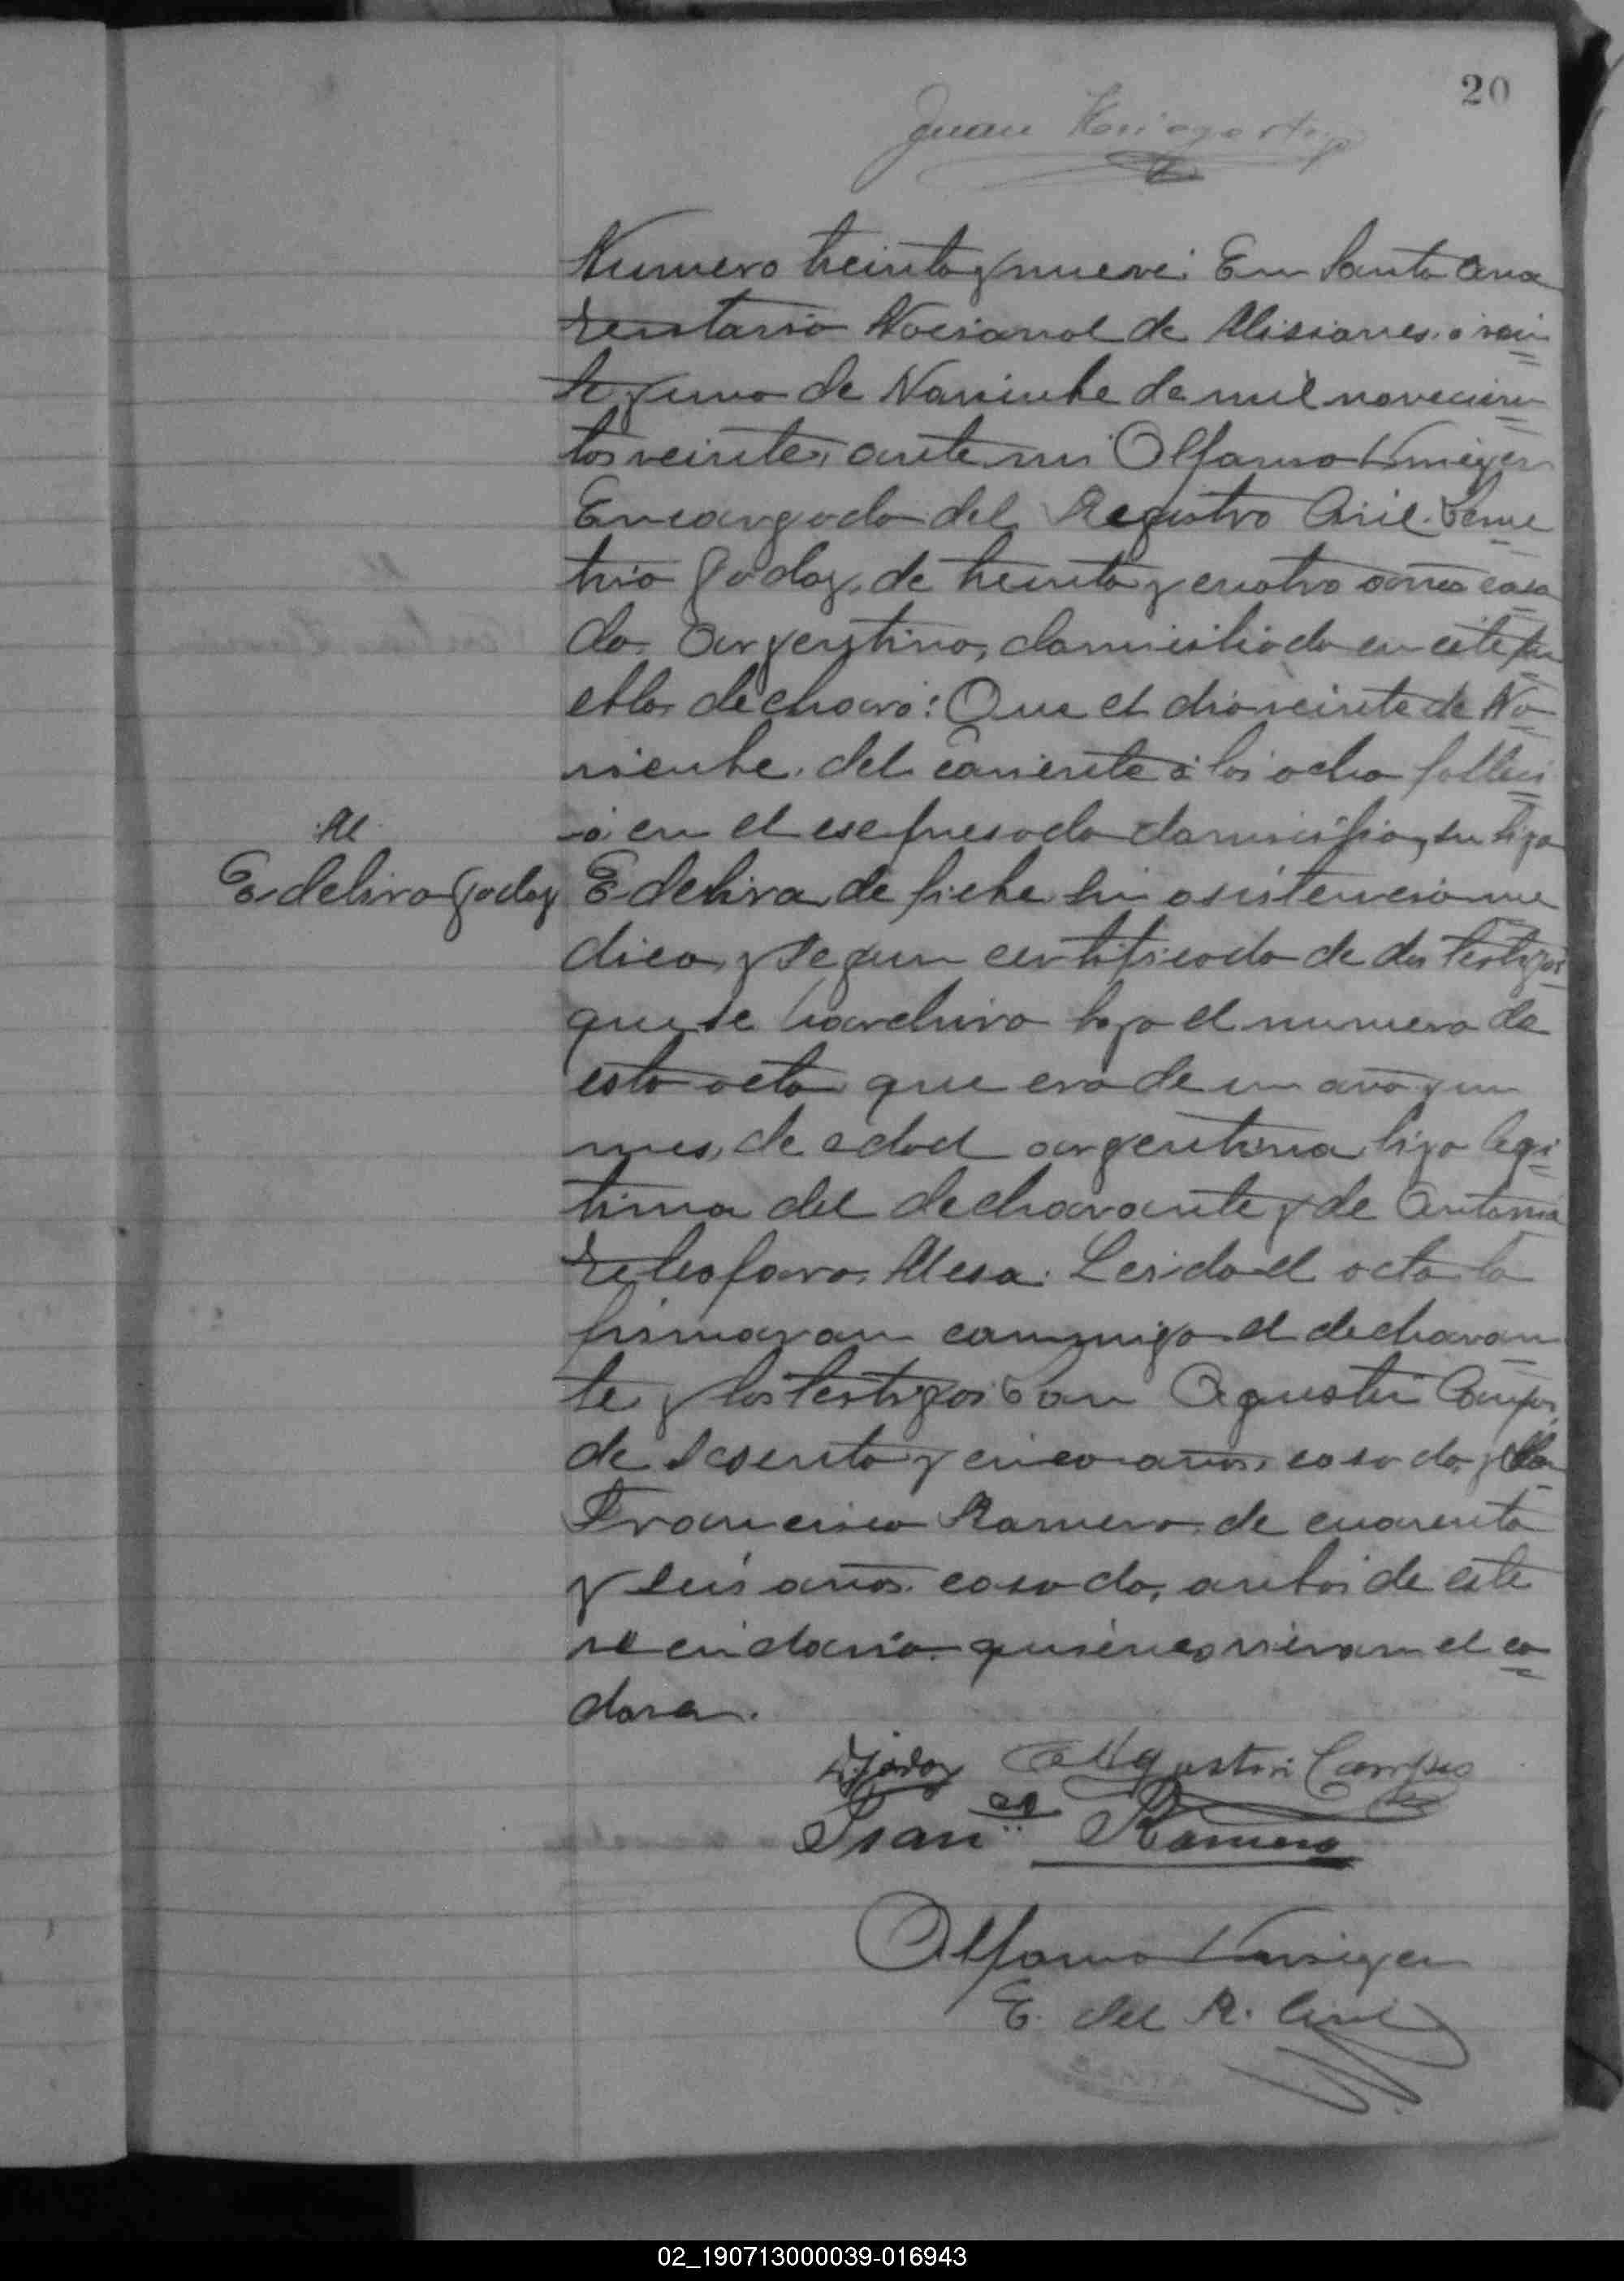 20
Juan
Numero treinta y nueve. En Santa Ana
Territorio Nacional de Misiones. a vein
te y uno de Noviembre de mil novecien
tos veinte, ante mi Olfamo
Encargado del Registro Civil. Deme
trio Godoy, de treinta y cuatro años casa
do, Argentino, domiciliado en este pu
eblo, declaró: Que el dia veinte de No
viembre del corriente á las ocho falleci
ó en el espresado domicilio, su hija
M
Edelira Godoy
Edelira de fiebre sin asistencia me
dica, y segun certificado de dos testigos
que se archiva bajo el numero de
esta acta que era de un año y un
mes, de edad argentina hija legi
tima del declarante y de Antonia
Mesa. Leida el acta la
firmaron conmigo el declaran
te y los testigos Don Agustin Campos,
de sesenta y cinco años, casado, y Don
Francisco Ramero, de cuarenta
y seis años casado, ambos de este
vecindario quienes vieron el ca
daver.
D. Godoy Agustin Campos
Franco Ramero
Olfamo
E. del R. Civil
02_190713000039-016943